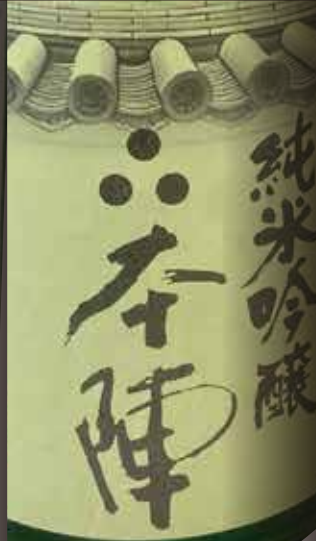 純米吟醸
本陣